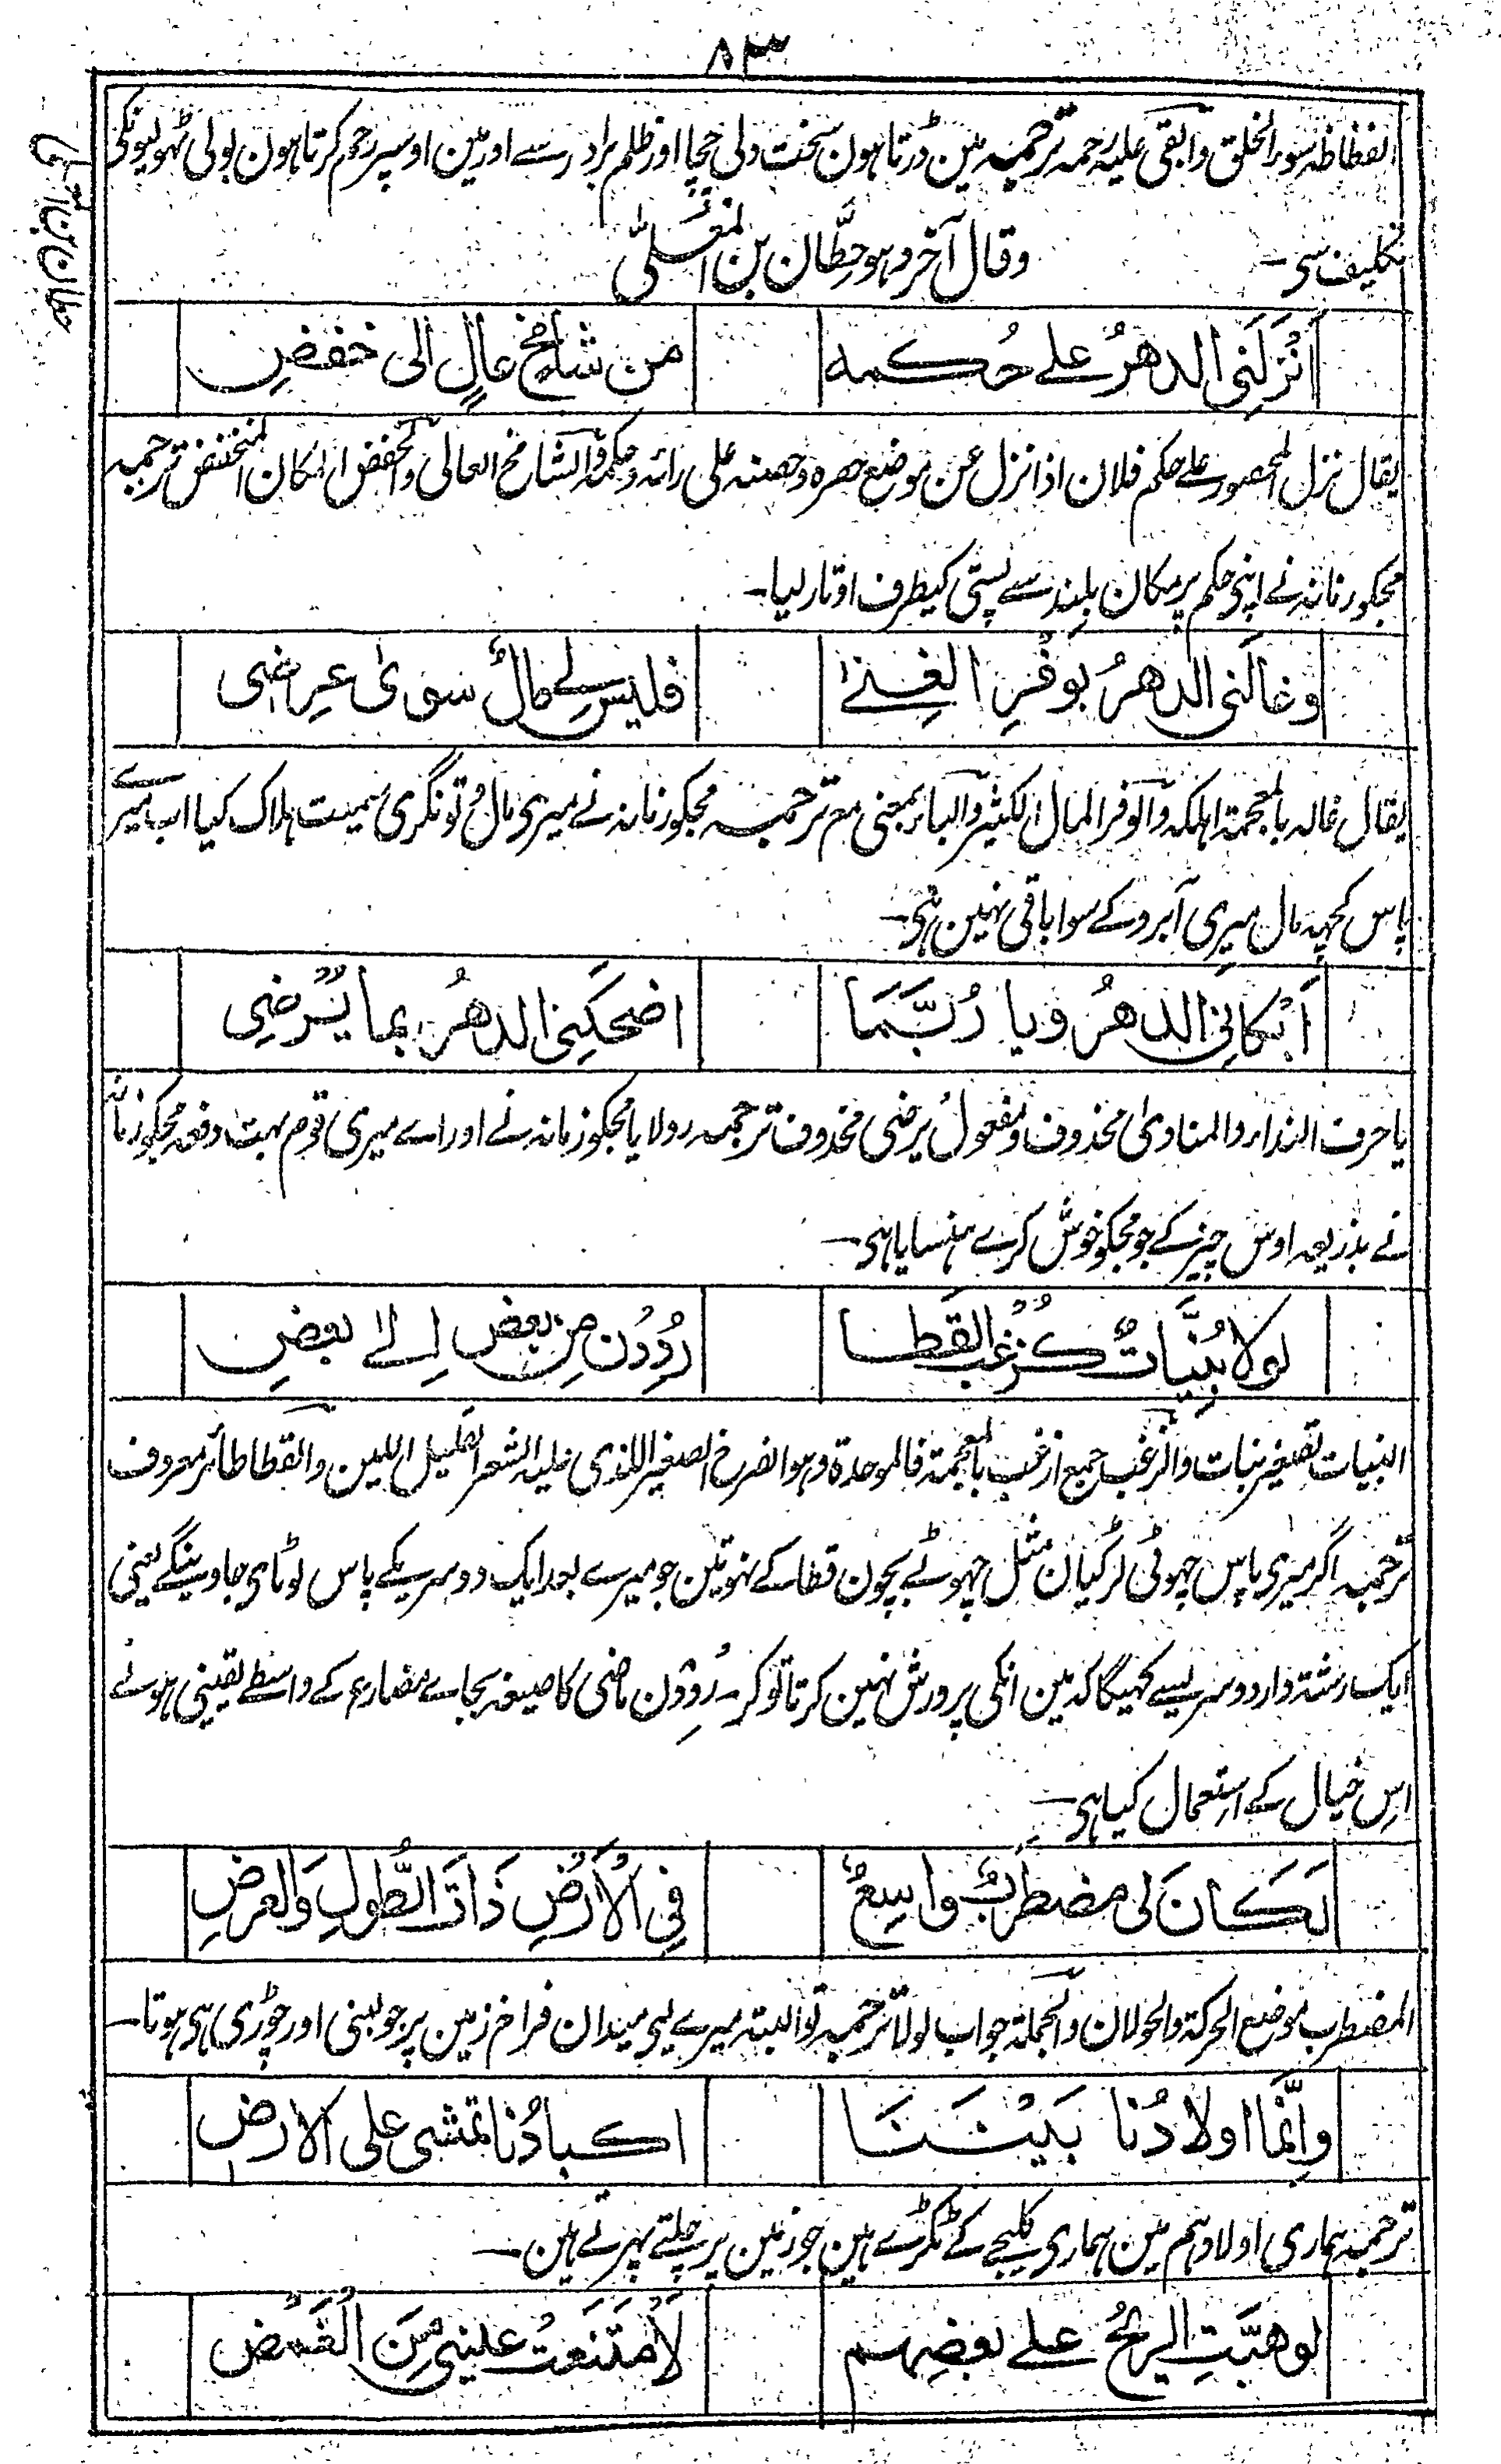 ۸۳
الفظاظہ سوء الخلق وآبقی علیہ رحمہ ترجمہ مین ڈرتا ہون سخت دلی چچا اور ظلم برادر سے اور مین اوسپر رحم کرتا ہون بولی ٹھولیونکی
تکلیف سی۔
وقال آخر وہو حِطَّان بن المُعَلّٰی
حطان بن المعلی
اَنْزَلَنِی الدهرُ علے حُكمه من شامخٍ عالٍ الی خفضِ
یقال نزل المحصور علے حکم فلان اذا نزل عن موضع حصرہ وحصنہ علی رائہ وحکمہ والشامخ العالی والخفض المکان المنخفض ترجمہ
مجکو زمانہ نے اپنی حکم پر مکان بلند سے پستی کیطرف اوتار لیا۔
وغالَنی الدهرُ بوفرِ الغِنےٰ فلیس لے مالٌ سویٰ عِرضی
یقال غالہ بالمعجمۃ اہلکہ والوفر المال الکثیر والباء بمعنی مع ترجمہ مجکو زمانہ نے میری مال و تونگری سمیت ہلاک کیا اب میرے
پاس کچھہ مال میری آبرو کے سوا باقی نہین ہی۔
اَبْکانِی الدهرُ ویا رُبَّمَا اضحکنِی الدهرُ بما یُرضِی
یا حرف النداء والمنادیٰ محذوف ومفعول یرضی محذوف ترجمہ رولایا مجکو زمانہ نے اور اے میری قوم بہت دفعہ مجکو زمانہ
نے بذریعہ اوس چیز کے جو مجکو خوش کرے ہنسایا ہی۔
لولا بُنَیَّاتٌ كزُغبِ القَطا رُدِدْنَ من بعضٍ اِلے بعضِ
البنیات تصغیر بنات والزغب جمع ازغب بالمعجمۃ فالموحدۃ وہو الفرخ الصغیر اللذی علیہ الشعر القلیل اللین والقطا طائر معروف
ترجمہ اگر میری پاس چھوٹی لڑکیان مثل چھوٹے بچون قطا کے نہوتین جو میرے بعد ایک دوسریکے پاس لوٹای جاوینگے یعنی
ایک رشتہ دار دوسریسے کہیگا کہ مین انکی پرورش نہین کرتا تو کر۔ رُدِدْن ماضی کا صیغہ بجاے مضارع کے واسطے یقینی ہونے
اس خیال کے استعمال کیا ہی۔
لَكَانَ لی مضطرَبٌ واسِعٌ فِی الْاَرْضِ ذَاتَ الطُّولِ وَالعرضِ
المضطرب موضع الحرکۃ والجولان والجملۃ جواب لولا ترجمہ تو البتہ میرے لیی میدان فراخ زمین پر جو لمبنی اور چوڑی ہی ہوتا۔
واِنَّما اولادُنا بَیْنَنَا اكبادُنا تمشی علی الارضِ
ترجمہ ہماری اولاد ہم مین ہماری کلیجے کے ٹکڑے ہین جو زمین پر چلتے پھرتے ہین۔
لو هبَّتِ الریحُ علے بعضِهم لَامْتَنَعَتْ عینِی مِنَ الغَمْضِ